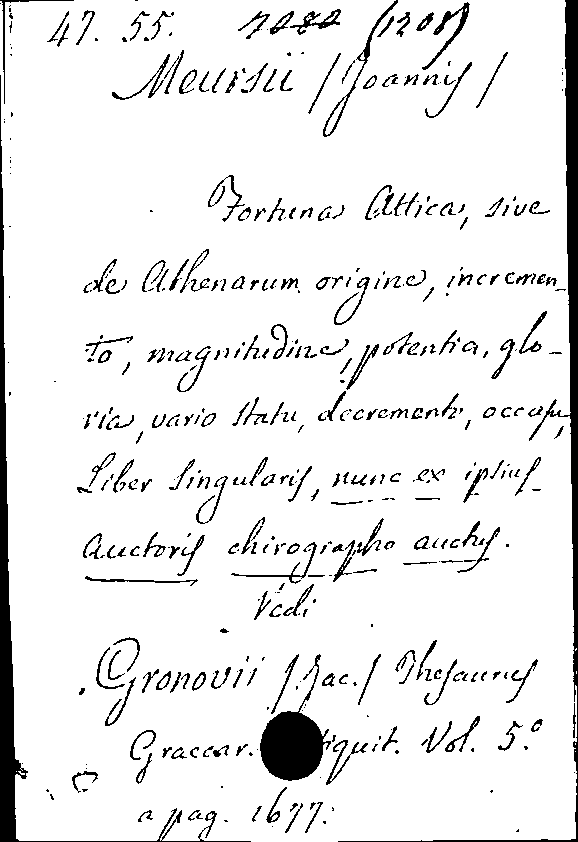 47. 55. 7080 (1208)
Meursii /Joannis/
Fortuna Attica, sive
de Athenarum origine, incremen-
to, magnitudine, potentia, glo-
ria, vario statu, decremento, occasu,
Liber singularis, nunc ex ipsius
Auctoris chirographo auctus.
Vedi
Gronovii /Jac./ Thesaurus
Graecar. tiquit. Vol. 5.º
a pag. 1677.